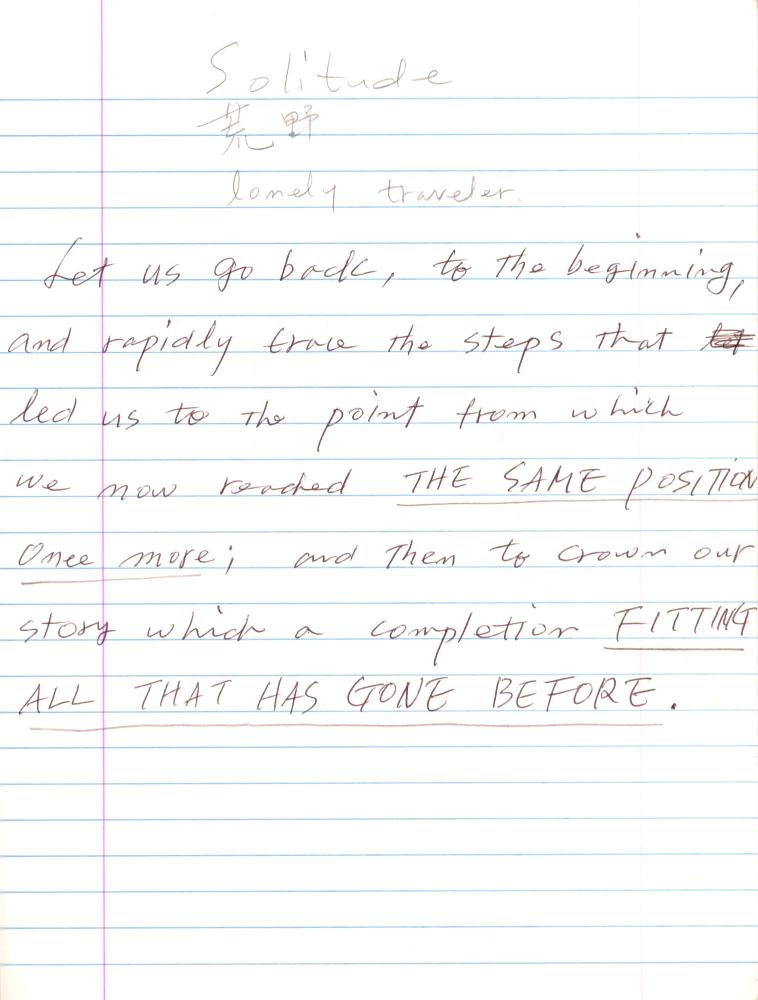 Solitude
荒野
lonely traveler.
Let us go back, to the beginning,
and rapidly trace the steps that
led us to the point from which
we now reached THE SAME POSITION
Once more; and then to crown our
story which a completion FITTING
ALL THAT HAS GONE BEFORE.